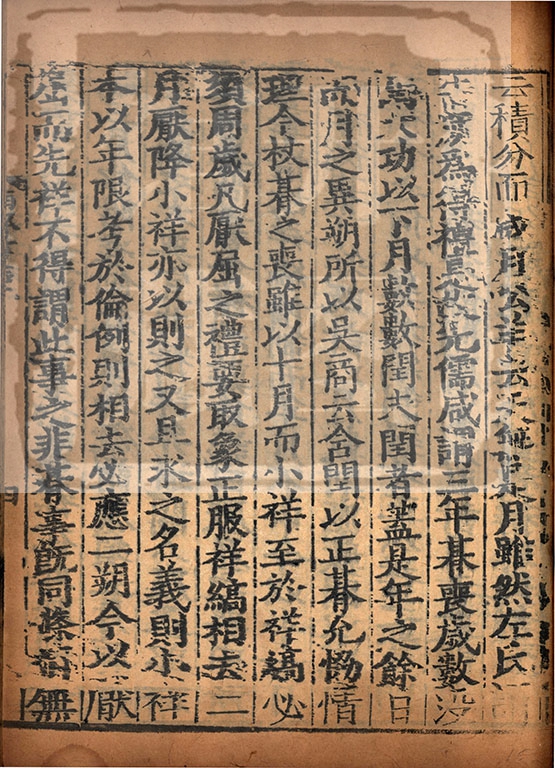 云積分而成月公羊云天無是月雖然左氏謂
告朔為得禮是故先儒咸謂三年朞喪歲數没
閏大功以下月數數閏夫閏者蓋是年之餘日
而月之異朔所以吳商云含閏以正朞允協情
理今杖朞之喪雖以十月而小祥至於祥縞必
須周歲凡厭屈之禮要取象正服祥縞相去二
月厭降小祥亦以則之又且求之名義則小祥
本以年限考於倫例則相去必應二朔今以厭
屈而先祥不得謂此事之非朞事既同條情無